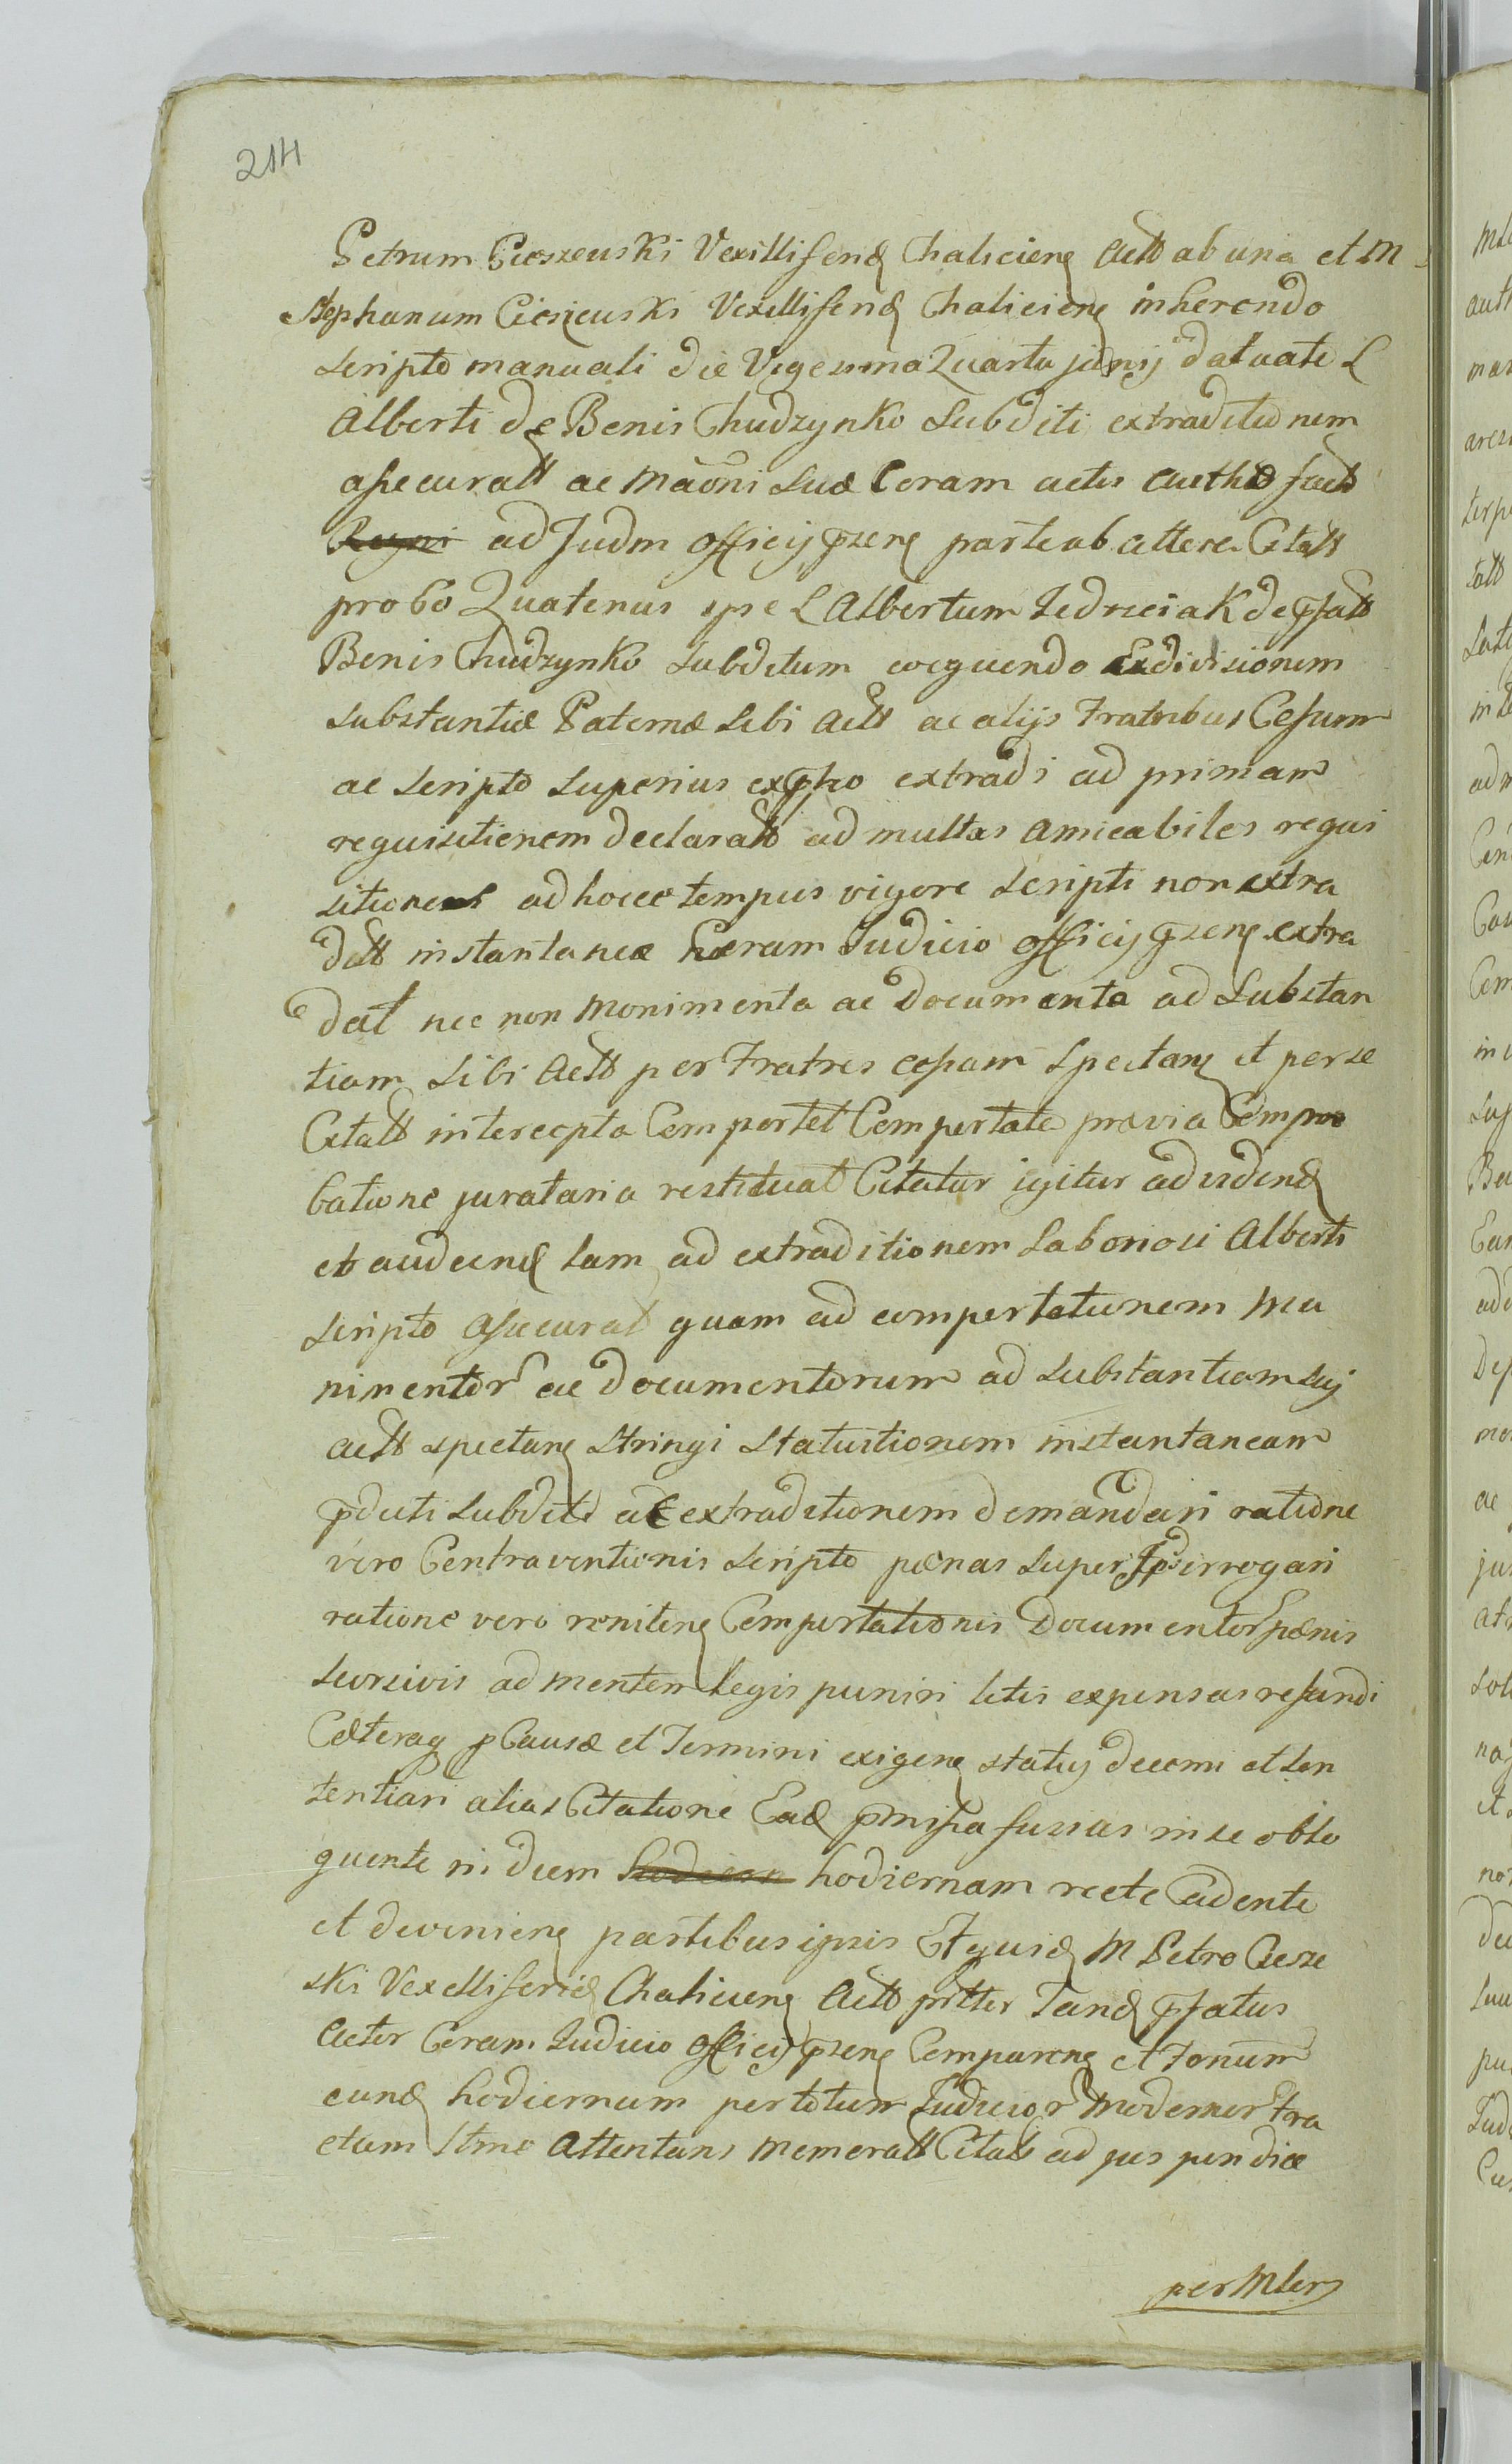 214
Petrum Cieszewski Vexilliferid Chaliciens Actt ab una et M
Stephanum Ciesiewski Vexilliferid Chaliciens inherendo
scripto manuali die Vigesima Quarta junij datuate L
Alberti de Bonis Chudzynko Subditi extraditionem
assecuratt ac Maōni Suæ Coram actis Authæ fact
Regni ad Judm officij pzens parte ab attera Citatt
probo Quatenus ipse L Albertum Jedrzeiak de pfatt
Bonis Chudzynko Subditum coequendo Exdivisionem
Substantiæ Paternæ Sibi Actt ac alijs Fratribus Cessum
ac Scripto Superius expsso extradi ad primam
requisitionem declaratt ad multas amicabiles requi
sitiones ad hocce tempus vigore Scripti non extra
ditt instantanee Coram Judicio officij pzens extra
dat nec non Monimenta ac Documenta ad Substan
tiam Sibi Actt per Fratres cessam Spectans et per se
Citatt intercepta Comportet Comportata prævia Compro
batione juratoria restituat Citatur igitur ad vidend
et audiend tam ad extraditionem Laboriosi Alberti
Scripto assecurat quam ad comportationem Mu
nimentor ac Documentorum ad Substantiam Sui
actt spectans Stringi Statuitionem instantaneam
pducti Subditi ac extraditionem demandari ratione
vero Contraventionis Scripto pœnas Super Ipso irrogari
ratione vero renitens Comportationis Documentor pœnis
Seorsivis ad mentem Legis puniri litis expensas refundi
Cæteraq p Causæ et Termini exigens statuj decerni et Sen
tentiari alias Citatione Ead pmissa fusius in se oblo
quente in diem hodiern hodiernam recte Cadente
et deveniens partibus ipsis Et quid M Petro Ciesze
ski Vexilliferid Chaliciens Actt prtter Tand pfatus
Actor Coram Judicio officij pzens Comparens et Tonum
eund hodiernum per totum Judicior Modernor tra
ctum Stme Attentans Memoratt Citatt ad jus pendice
per Mler